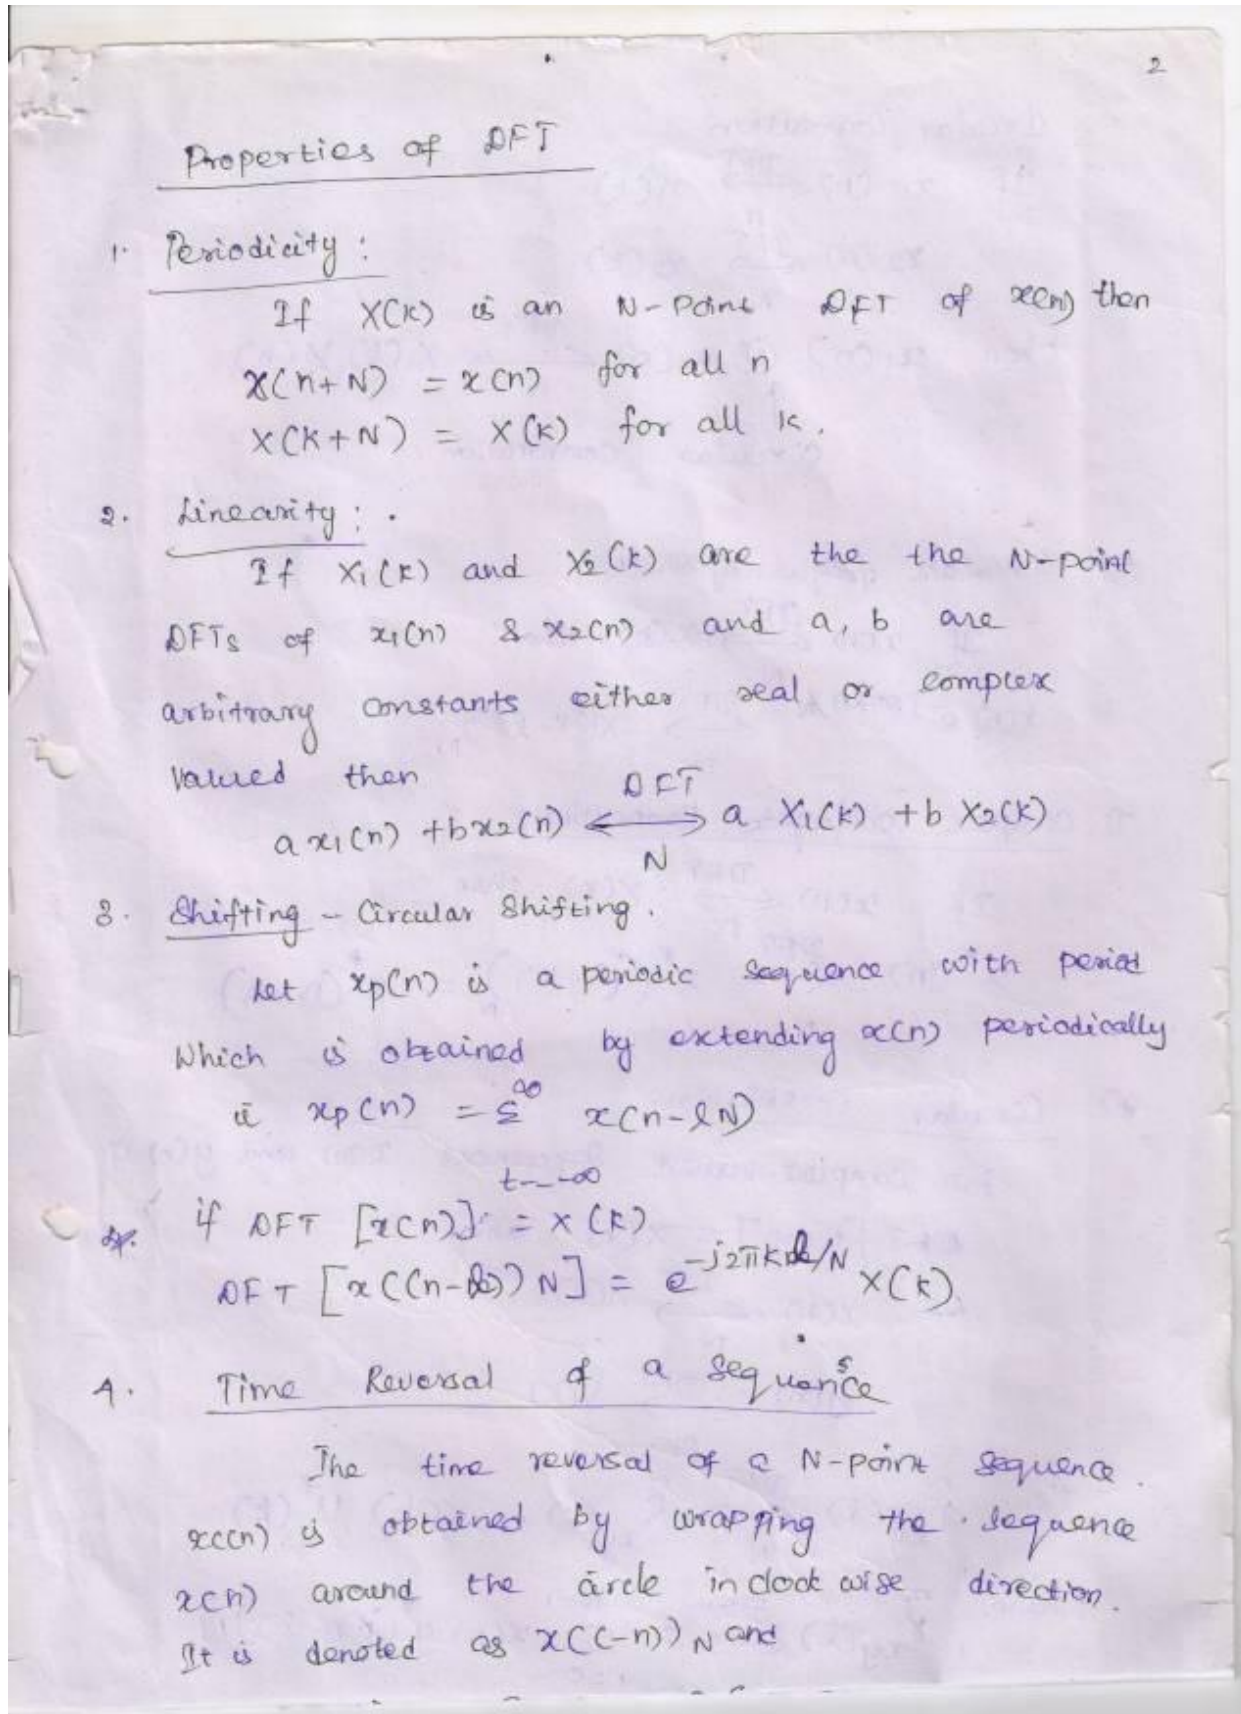 2
Properties of DFT
1. Periodicity :
If X(k) is an N-Point DFT of x(n) then
x(n+N) = x(n) for all n
X(K+N) = X(k) for all k.
2. Linearity :
If X1(k) and X2(k) are the the N-point
DFTs of x1(n) & x2(n) and a, b are
arbitrary constants either real or complex
Valued then
DFT
a x1(n) + b x2(n) ⟷ a X1(k) + b X2(k)
N
3. Shifting - Circular Shifting.
Let xp(n) is a periodic sequence with period
Which is obtained by extending x(n) periodically
ie xp(n) = Σ^∞ x(n-lN)
t--∞
if DFT [x(n)] = X(k)
DFT [x((n-l))N] = e^-j2πkl/N X(k)
4. Time Reversal of a Sequence
The time reversal of a N-point sequence.
x(n) is obtained by wrapping the sequence
x(n) around the circle in clock wise direction.
It is denoted as x((-n))N and